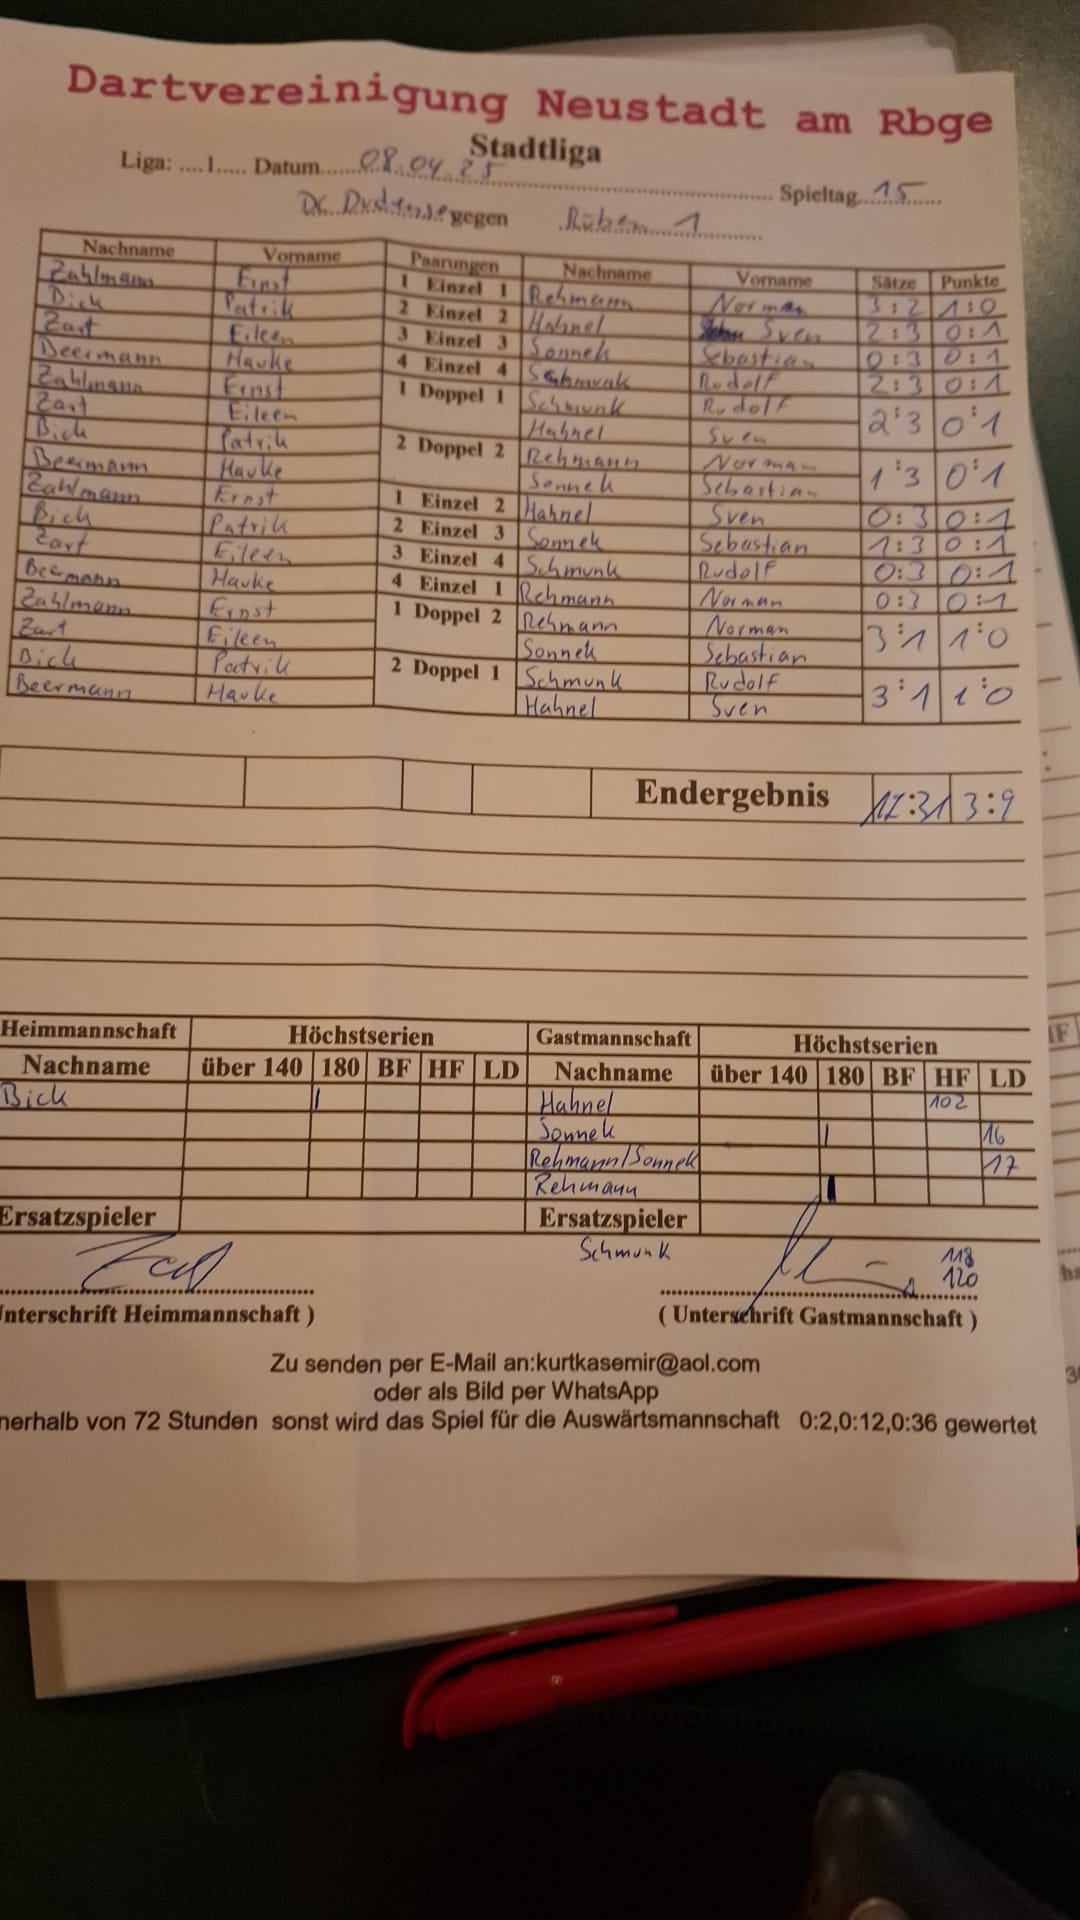 Dartvereinigung Neustadt am Rbge
Stadtliga
Liga: ....1..... Datum......08.04.25...... Spieltag...15......
DC Dudense gegen Rüben 1
Nachname Vorname Paarungen Nachname Vorname Sätze Punkte
Zahlmann Ernst 1 Einzel 1 Rehmann Norman 3:2 1:0
Bick Patrik 2 Einzel 2 Hahnel Sven 2:3 0:1
Zart Eileen 3 Einzel 3 Sonnek Sebastian 0:3 0:1
Beermann Hauke 4 Einzel 4 Schmunk Rudolf 2:3 0:1
Zahlmann Ernst 1 Doppel 1 Schmunk Rudolf 2:3 0:1
Zart Eileen Hahnel Sven
Bick Patrik 2 Doppel 2 Rehmann Norman 1:3 0:1
Beermann Hauke Sonnek Sebastian
Zahlmann Ernst 1 Einzel 2 Hahnel Sven 0:3 0:1
Bick Patrik 2 Einzel 3 Sonnek Sebastian 1:3 0:1
Zart Eileen 3 Einzel 4 Schmunk Rudolf 0:3 0:1
Beermann Hauke 4 Einzel 1 Rehmann Norman 0:3 0:1
Zahlmann Ernst 1 Doppel 2 Rehmann Norman 3:1 1:0
Zart Eileen Sonnek Sebastian
Bick Patrik 2 Doppel 1 Schmunk Rudolf 3:1 1:0
Beermann Hauke Hahnel Sven
Endergebnis 17:31 3:9
Heimmannschaft Höchstserien Gastmannschaft Höchstserien
Nachname über 140 180 BF HF LD Nachname über 140 180 BF HF LD
Bick | Hahnel 102
Sonnek | 16
Rehmann/Sonnek 17
Rehmann |
Ersatzspieler Ersatzspieler
Schmunk 118
120
Unterschrift Heimmannschaft ) ( Unterschrift Gastmannschaft )
Zu senden per E-Mail an:kurtkasemir@aol.com
oder als Bild per WhatsApp
nerhalb von 72 Stunden sonst wird das Spiel für die Auswärtsmannschaft 0:2,0:12,0:36 gewertet